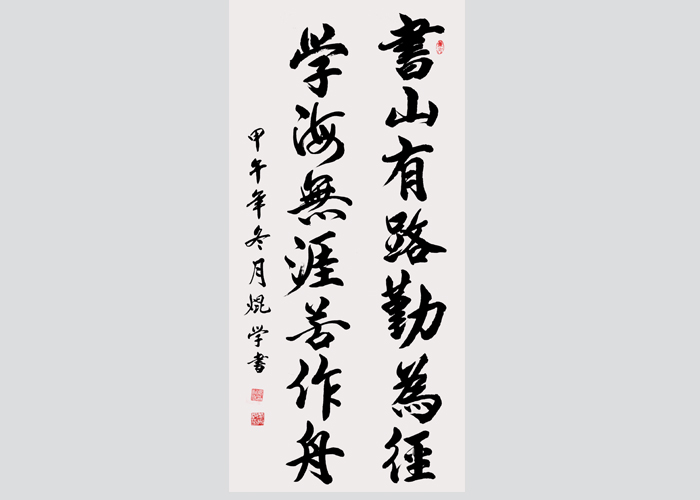 書山有路勤為徑
学海無涯苦作舟
甲午年冬月焜学書